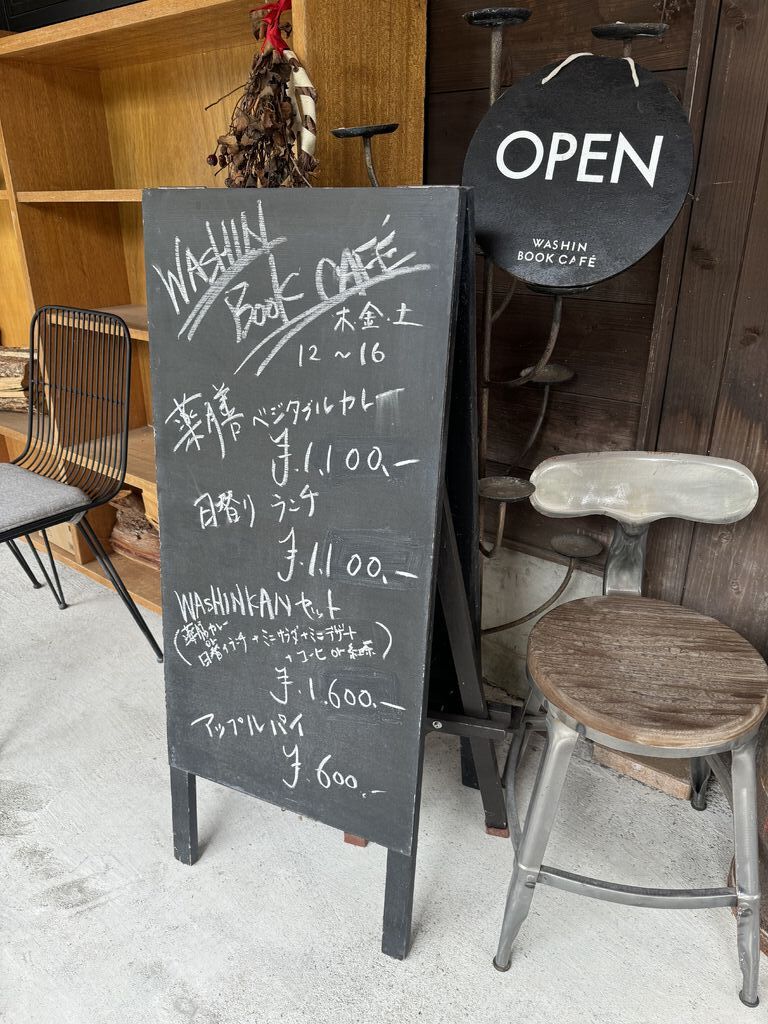 OPEN
WASHIN
BOOK CAFÉ
WASHIN
Book CAFÉ
木.金.土
12 ~ 16
薬膳 ベジタブルカレー
¥.1,100.-
日替り ランチ
¥.1,100.-
WASHINKAN セット
(薬膳カレー
or
日替りランチ + ミニサラダ + ミニデザート
+ コーヒ or 紅茶)
¥.1.600.-
アップルパイ
¥.600.-